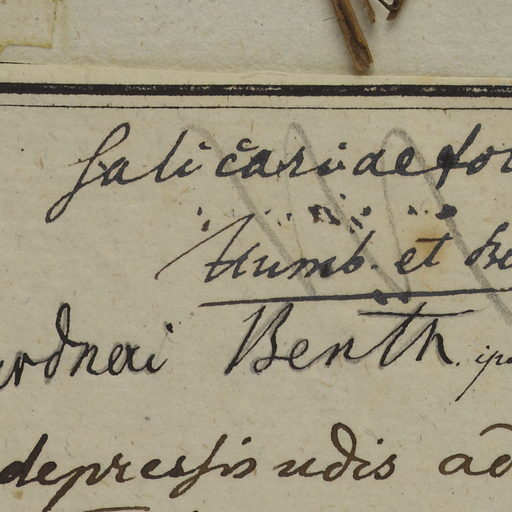 salicariaefol
Humb. et Bo
ardneri Benth. ips
depressis udis ad